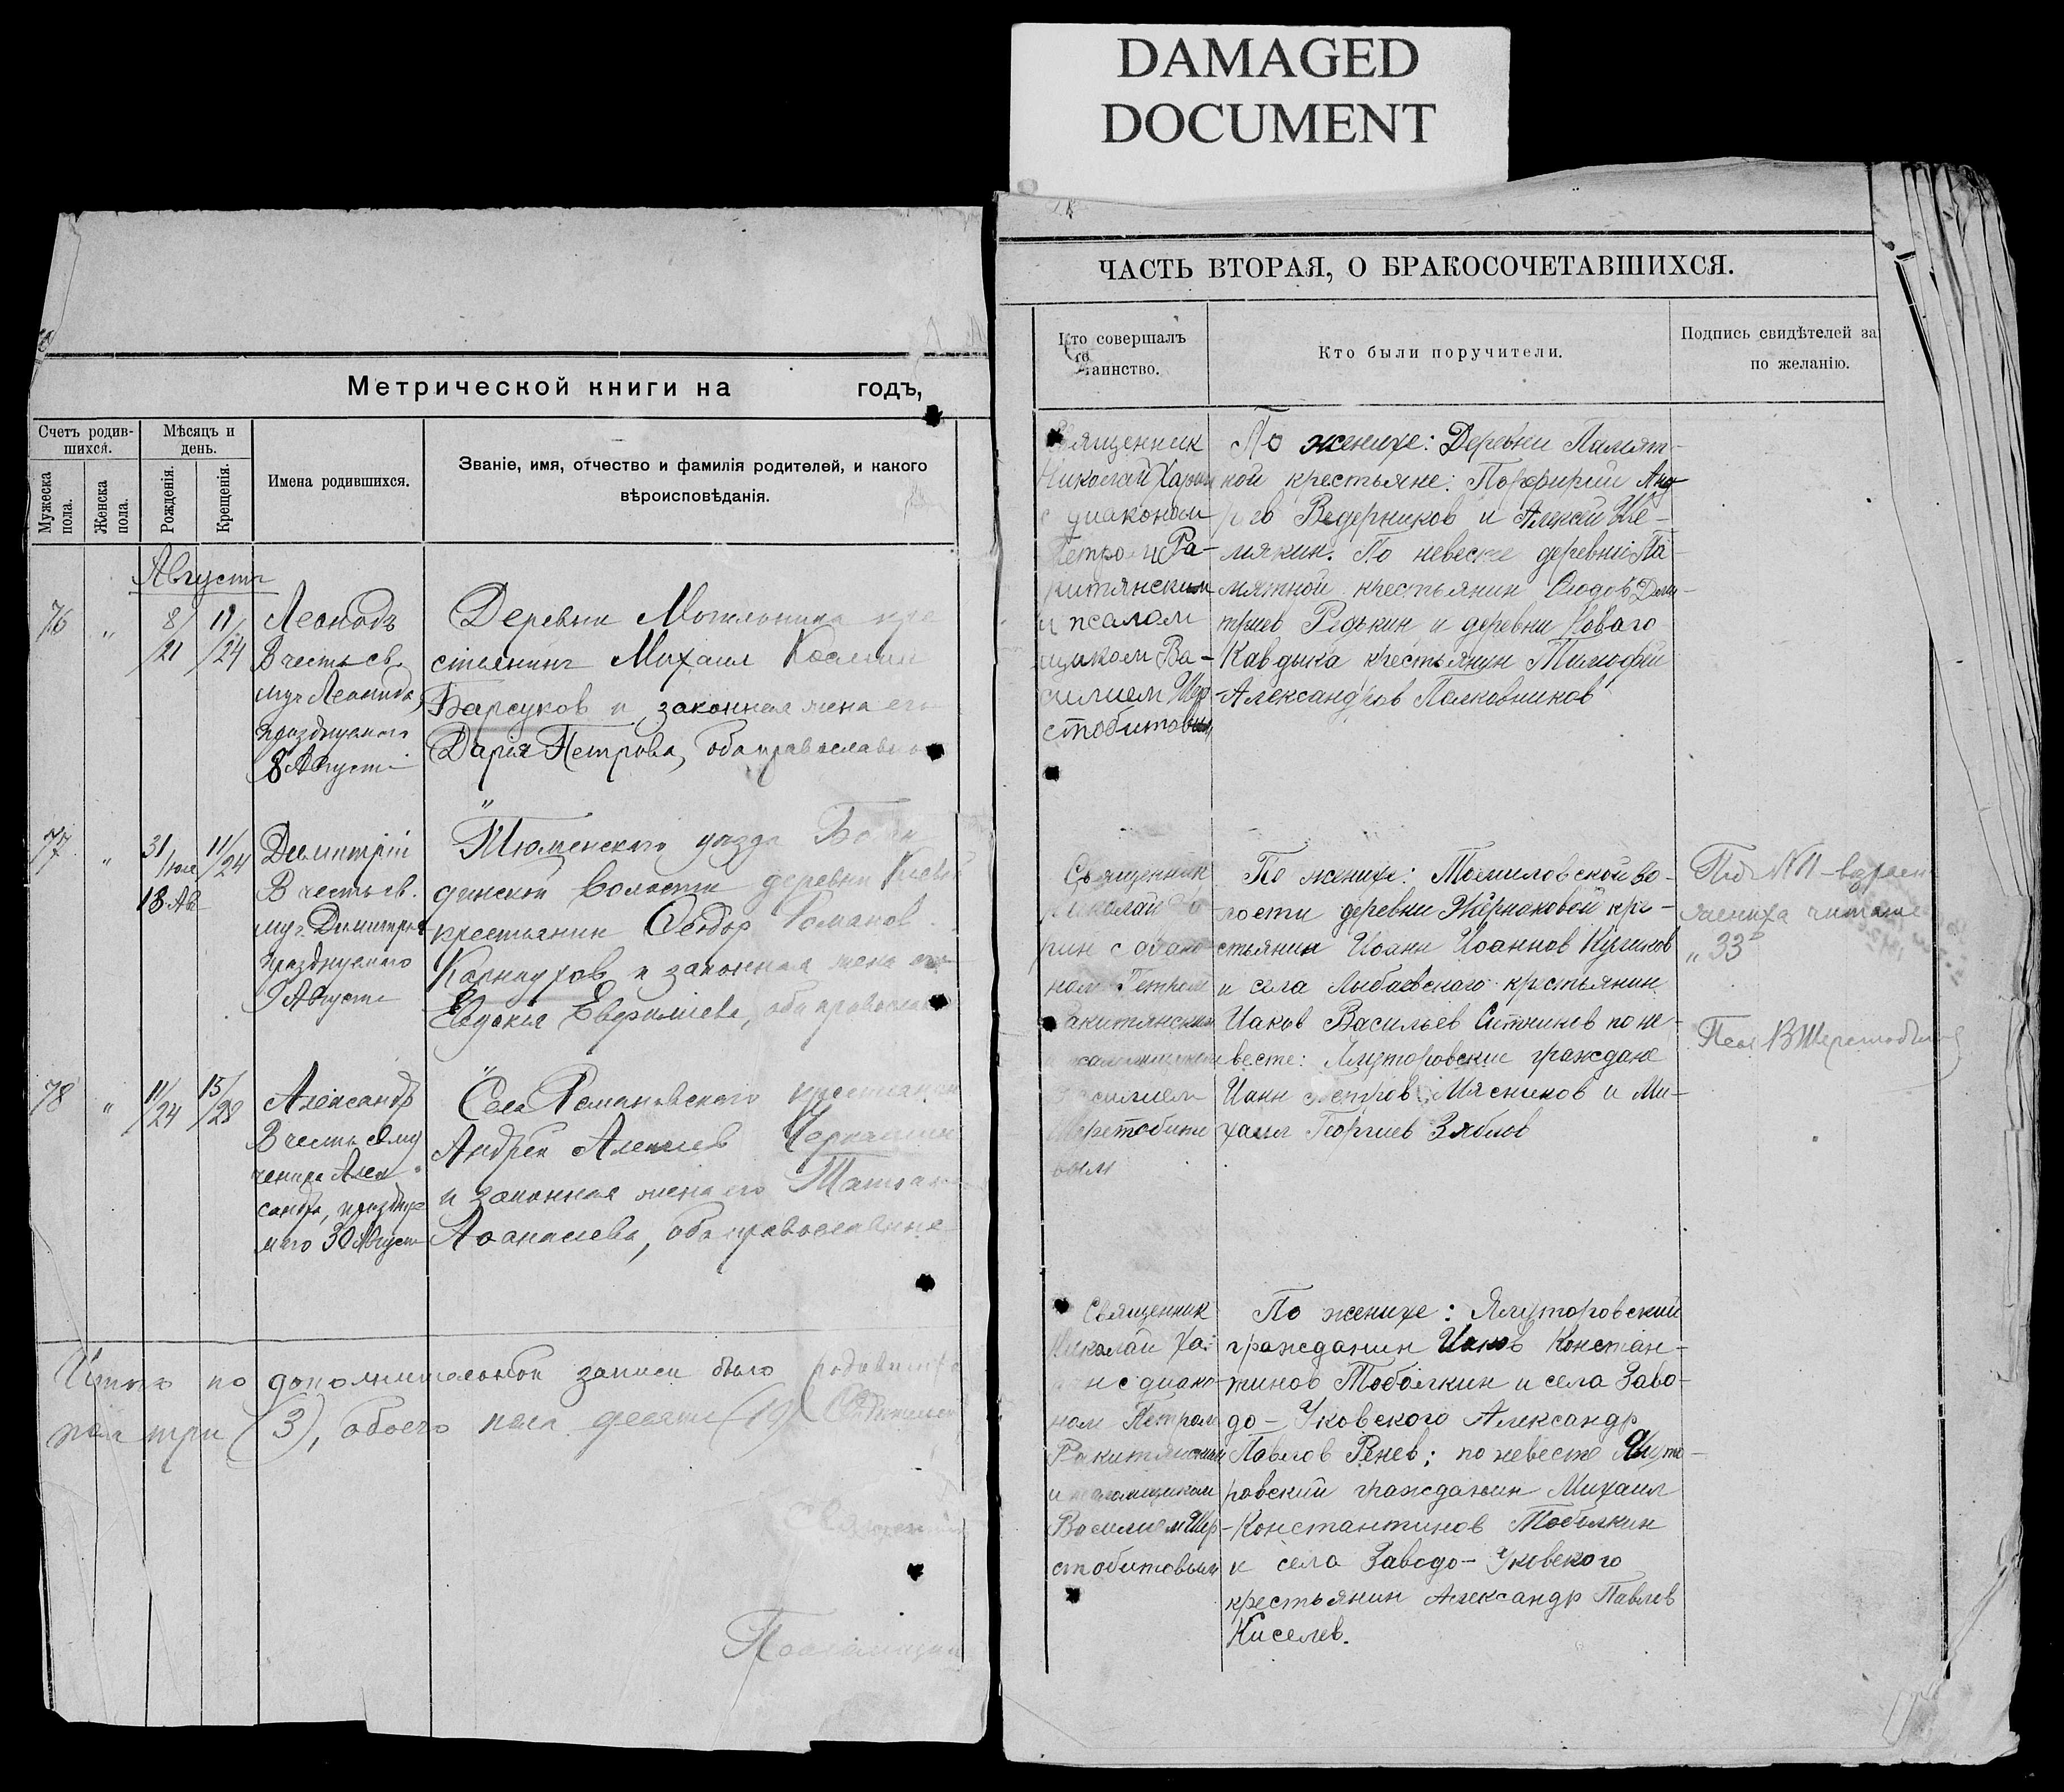 DAMAGED
DOCUMENT
Метрической книги на годъ,
Счетъ родив-
шихся.
Мѣсяцъ и
день.
Мужеска
пола.
Женска
пола.
Рожденія.
Крещенія.
Имена родившихся.
Званіе, имя, отчество и фамилія родителей, и какого
вѣроисповѣданія.
Августъ
76 " 8/21 11/24
Леонидъ
В честь св.
муч. Леонида,
празднуемаго
8 Августа
Деревни
стьянинъ Михаил Косьмин
Барсуков и законная жена его
Дарія Петрова, оба православ
77 " 31/юля 11/24
18 Ав
Димитрій
В честь св.
муч. Димитрія
празднуемаго
9 Августа
Тюменского уезда
волости деревни
крестьянин Феодор Романов
и законная жена его
Евдокия Евфимиева, оба правосла
78 " 11/24 15/28
Александр
В честь св. му
ченика Алек
сандра, праздну
маго 30 Август
Села Романовского
Андрей Алексиев
и законная жена его
Афанасиева, оба православные
Итого по дополнительной записи было
пола три (3), обоего пола (19)
ЧАСТЬ ВТОРАЯ, О БРАКОСОЧЕТАВШИХСЯ.
Кто совершалъ
таинство.
Кто были поручители.
Подпись свидѣтелей за
по желанію.
Священник
Николай
с диаконом
Петром Ра-
китянским
и псалом
щиком Ва-
силием Шер
стобитовым
По женихе: Деревни Памят-
ной крестьяне: Порфирий Анд
Ведерников и Алексей Ше-
мякин. По невесте деревни Па-
мятной крестьянин Феодор Дими-
триев Редькин и деревни Новаго
Кавдыка крестьянин Тимофей
Александров Полковников
Священник
Николай
рин с диако
ном Петром
Ракитянским
псаломщиком
Василием
Шерстобито
вым
По женихе: Томиловской во-
лости деревни Жерноковой кре-
стьянин Иоанн Иоаннов Куликов
и села Лыбаевского крестьянин
Иаков Васильев Ситников по не-
весте: Ялуторовские граждане
Иоанн Петров Мясников и Ми-
хаил Георгиев Зяблов
Под № 11
жениха читать
„ 33"
Псал. В Шерстобитов
Священник
Николай Ха-
рин с диако-
ном Петром
Ракитянским
и псаломщиком
Василием Шер-
стобитовым
По женихе: Ялуторовский
гражданин Иаков Констан-
тинов Тоболкин и села Заво-
до-Уковского Александр
Павлов Ренев; по невесте Ялуто-
ровский гражданин Михаил
Константинов Тоболкин
и села Заводо-Уковского
крестьянин Александр Павлов
Киселев.